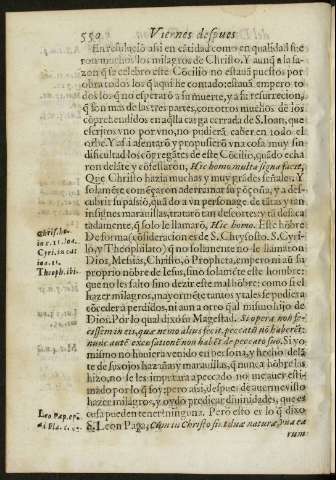 550 Viernes despues
En resoluciõ asi en cãtidad como en qualidad fue
ron muchos los milagros de Christo. Y aunq̃ a la sa-
zon q̃ se celebro este Cõcilio no estauã puestos por
obra todos los q̃ aqui he contado; estauã empero to
dos los q̃ no esperarõ a su muerte, y a su resurrecion,
q̃ son mas de las tres partes, con otros muchos de los
cõprehendidos en aq̃lla carga cerrada de S. Ioan, que
escritos vno por vno, no pudierã caber en todo el
orbe. Y asi asentarõ y propusierõ vna cosa muy sin
dificultad los cõgregãts de este Cõcilio, quãdo echa
ron delãte y cõfessarõ, Hic homo multa signa facit,
Que Christo hazia muchas y muy grãdes señales. Y
solamẽte començaron a derramar su põçoña, y a des-
cubrir su pasiõ, quã do a vn personage de tãtas y tan
insignes marauillas, tratarõ tan descortes: y tã desaca
tadamente, q̃ solo le llamarõ, Hic homo. Este hõbre
De forma (cõsideracion es de S. Chrysosto. S. Cyri-
lo, y Theophilato) q̃ no solamente no le llamarõ
Dios, Mesias, Christo, ò Propheta, empero ni aũ su
proprio nõbre de Iesus, sino solamẽte este hombre:
que no les falto sino dezir este mal hõbre: como si el
hazer milagros, mayormẽte tantos y tales se pudiera
cõceder a perdidos, ni aun a otro q̃ al mismo hijo de
Dios. Por lo qual dixo su Magestad. Si opera non fe-
cissem in eis, quæ nemo alius fecit, peccatũ nõ haberẽt:
nunc autẽ excusationẽ non habẽt de peccato suo. Si yo
mismo no huuiera venido en persona, y hecho delã
te de sus ojos hazañas y marauillas, q̃ nunca hõbre las
hizo, no se les imputara a peccado no me auer esti-
mado por lo q̃ soy; pero assi, despues de auerme visto
hazer milagros, y oydo predicar diuinidades, que es
cusa pueden tener? ninguna. Pero esto es lo q̃ dixo
S. Leon Papa; Cùm in Christo sit duæ naturæ, vna ea
rum
Chriſ. ho.
Cyri. in cat
Theoph. ibi.
Leo Pap. epi.